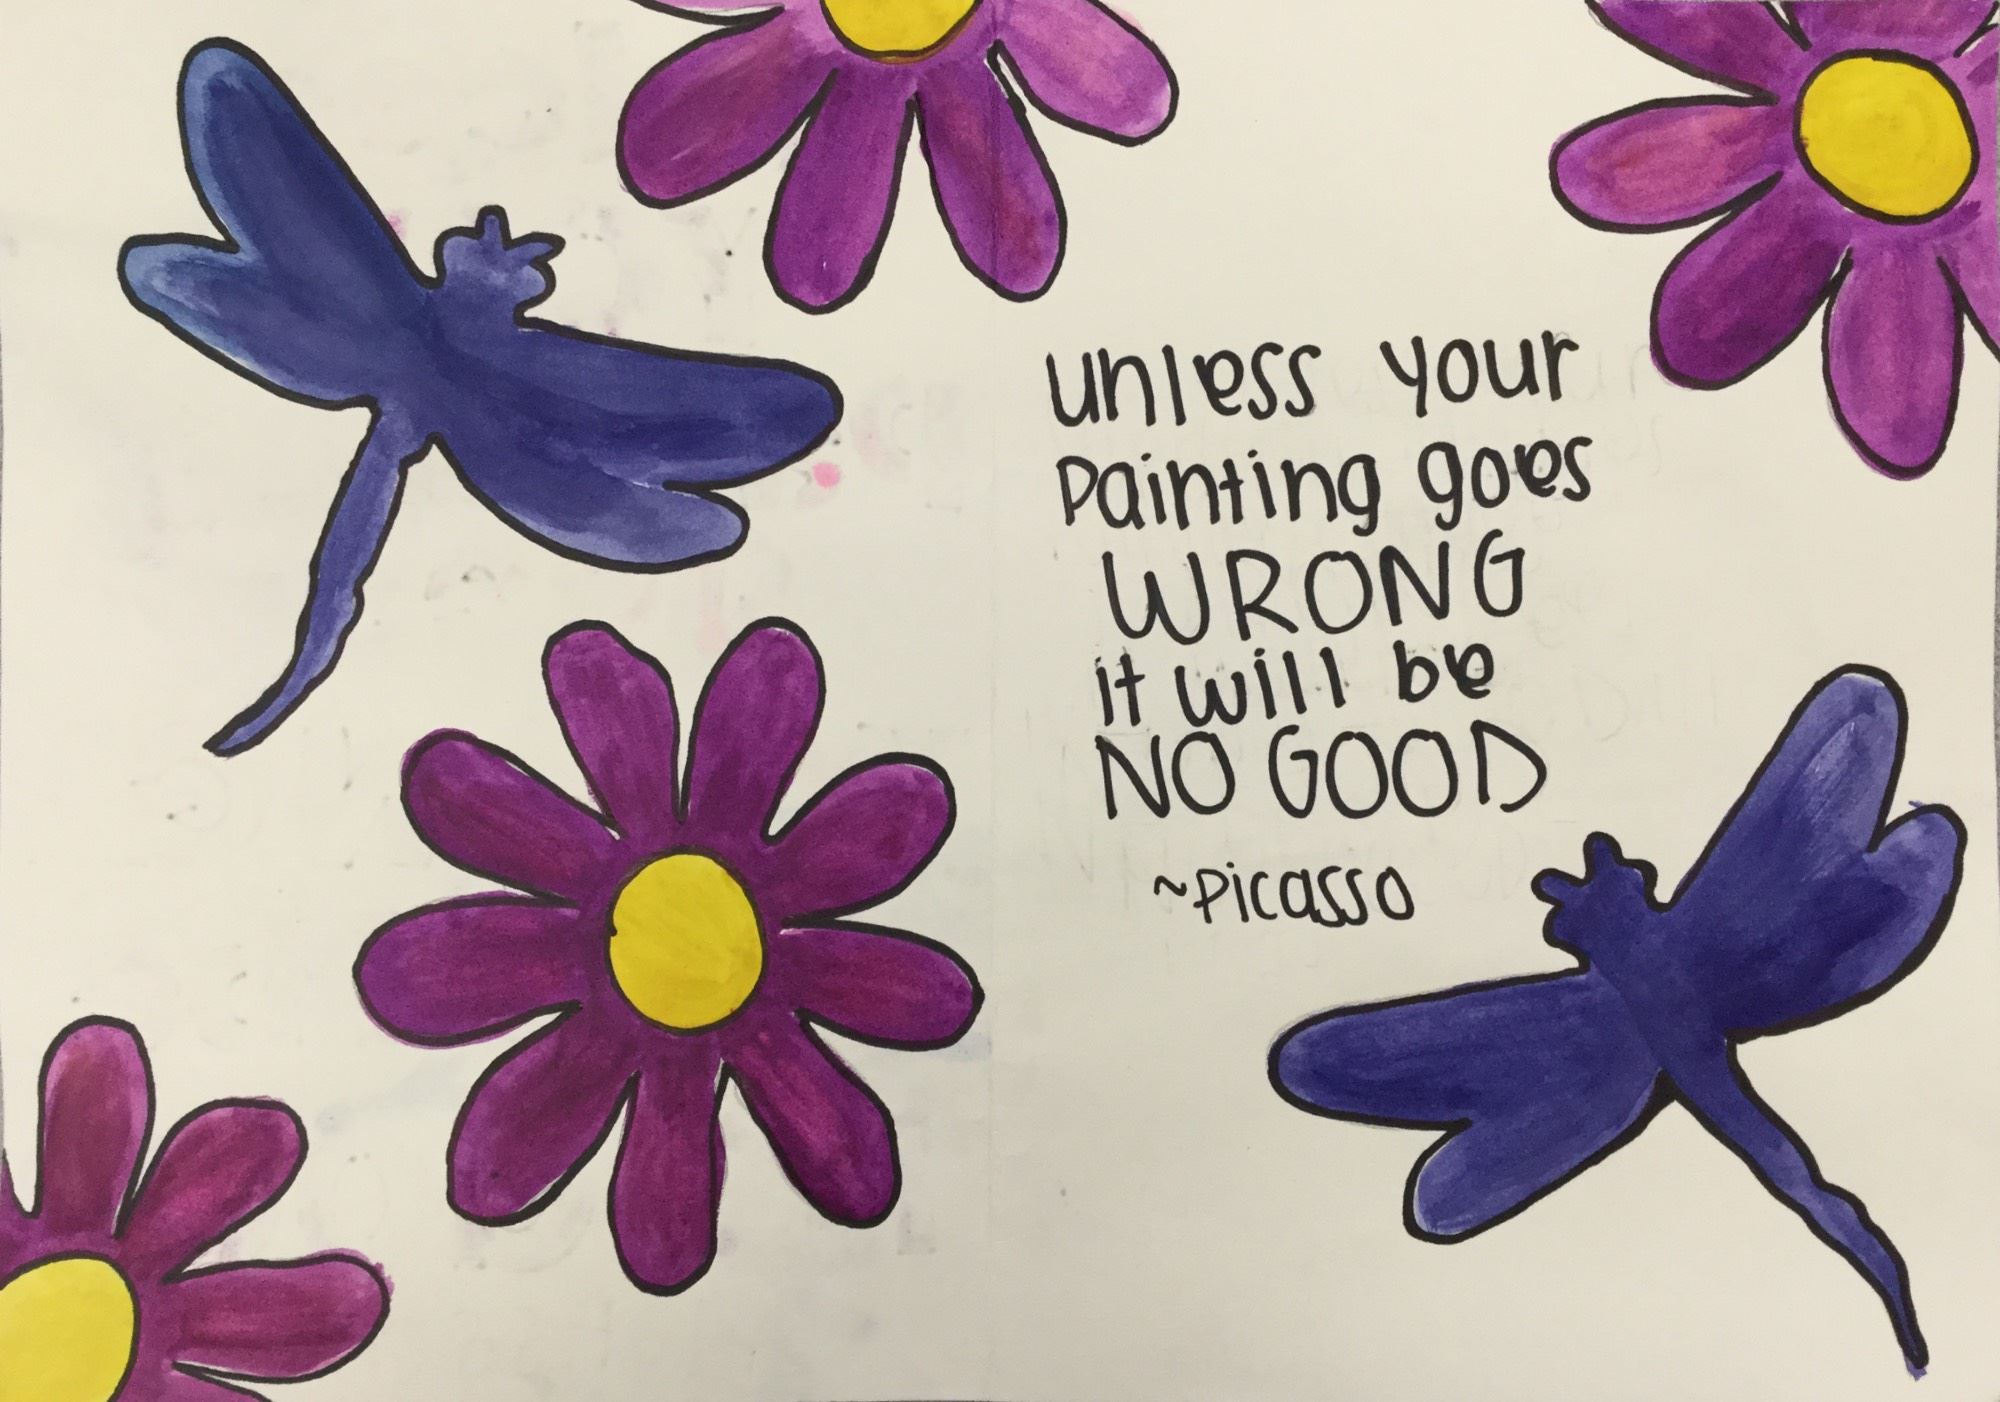 unless your
painting goes
WRONG
it will be
NO GOOD
~Picasso